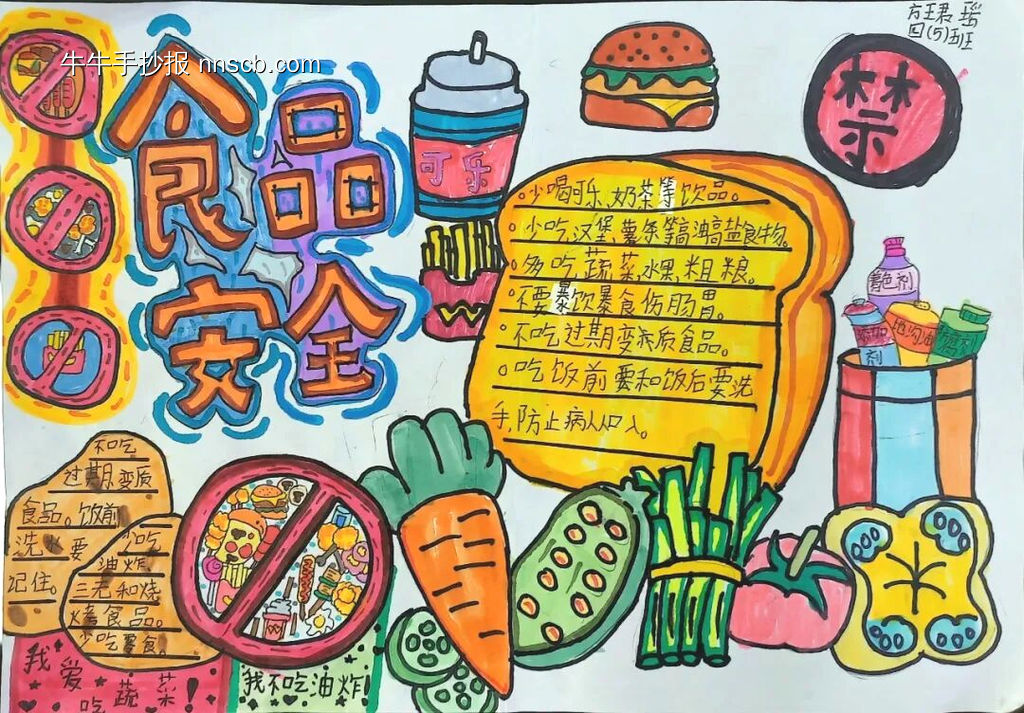 牛牛手抄报 nnscb.com
方王君瑶
四(5)班
食品
安全
可乐
禁
少喝可乐、奶茶等饮品。
少吃,汉堡,薯条等高油高盐食物。
多吃,蔬菜,水果,粗粮。
不要暴饮暴食伤肠胃。
不吃过期变质食品。
吃饭前要和饭后要洗
手,防止病从口入。
着色剂
剂
不吃
过期变质
食品。饭前
洗 要
记住。
少吃
油炸
三无和烧
烤食品。
少吃零食。
我爱
吃蔬菜!
我不吃油炸!